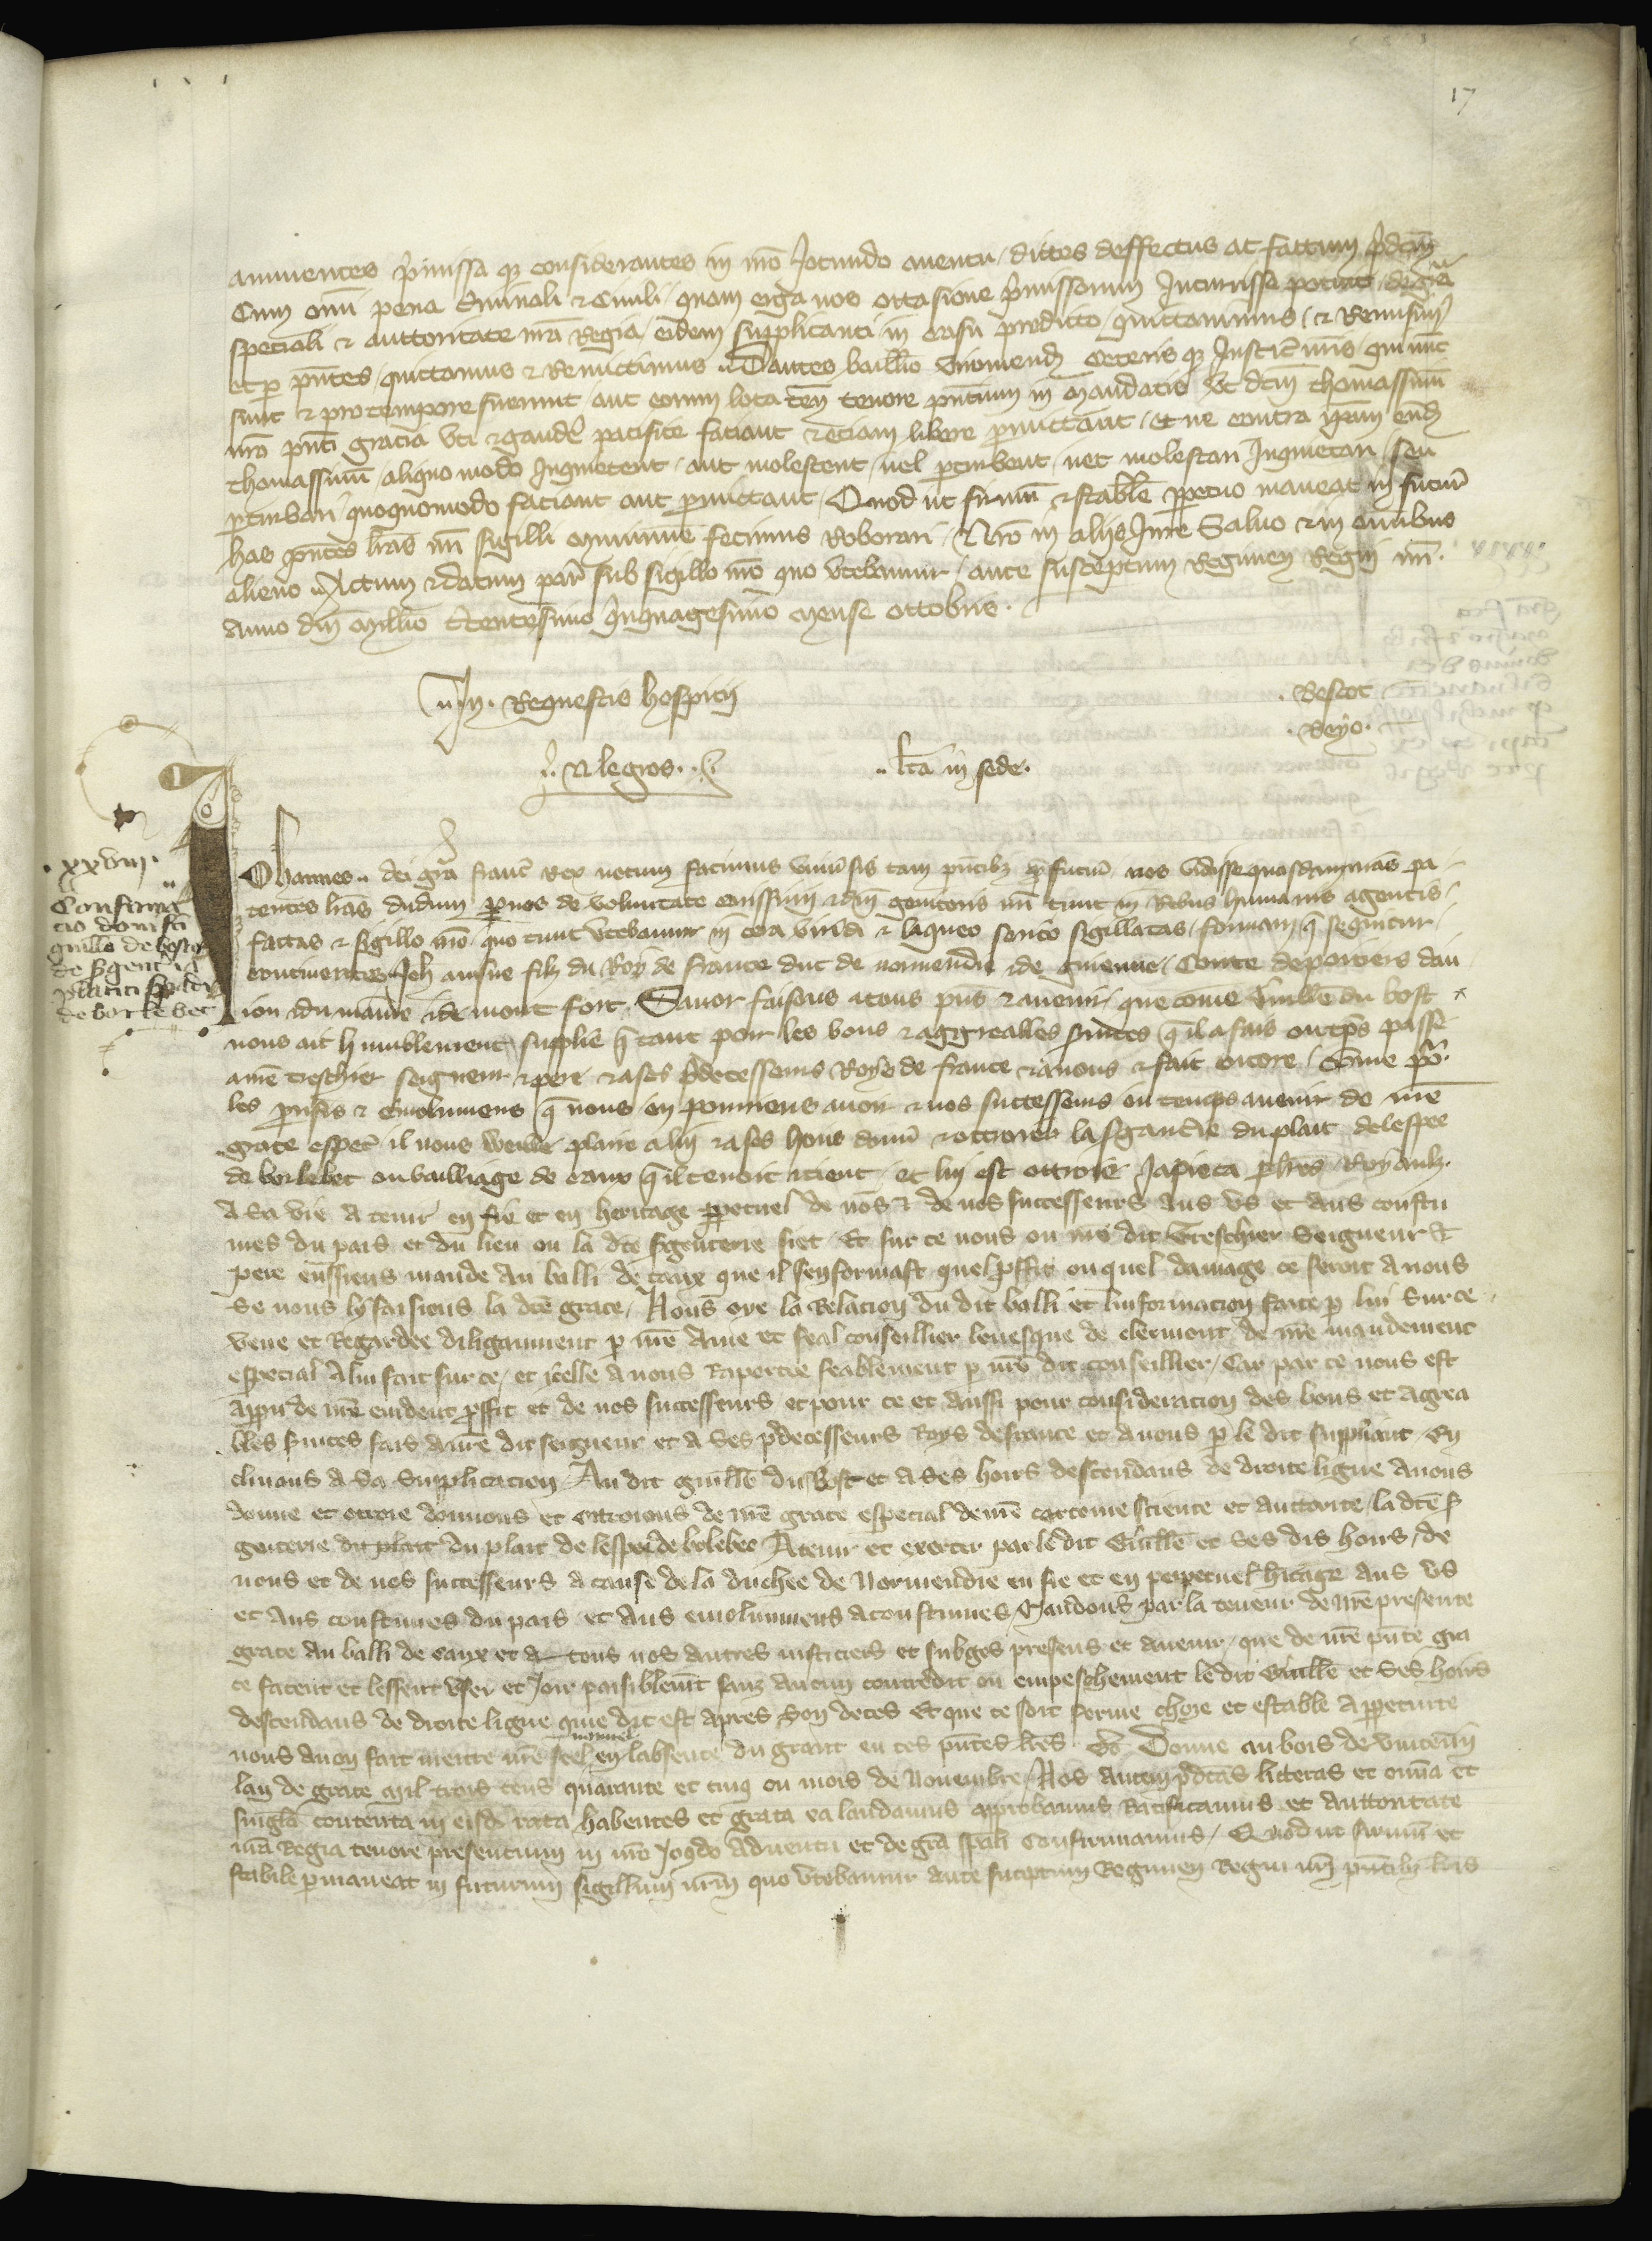 17
annuentes p̃missa q̃ considerantes in nr̃o Jocundo aduentu dictos deffectus ac factum p̃dc̃m
Cum om̃i pena Criminali & Ciuili quam erga nos occasione p̃missorum Incurrisse potuit de gr̃a
speciali & auctoritate nr̃a Regia eidem supplicanti in casu predicto quittauimus & Remisim9
et p pñtes quictamus & Remictimus Dantes bailliuo ceteris q̃ Justic̃ nr̃is qui nunc
sunt & pro tempore fuerint aut eorum loca teñ tenore pñtium in mandatis vt dc̃m thomassinũ
nr̃a pñti gracia vti & gaudẽ pacifice faciant & etiam libere pmittant et ne contra ip̃am eũd
thomassinũ aliquo modo Inquietent aut molestent uel pturbent nec molestari Inquietari seu
pturbari quoquomodo faciant aut pmictant Quod ut firmũ & stabile ppetuo maneat in futur̃
has pñtes lr̃as nr̃i sigilli munimine fecimus Roborari Nr̃o in alijs Jure Saluo & in om̃ibus
alieno Actum & datum par̃ sub sigillo nr̃o quo vtebamur ante susceptum Regimen Regni nr̃i
Anno dñi Millio CCCentesimo quinquagesimo mense octobris
In Requestis hospicij
Bescot
N legros
lc̃a in sede
xxviii
Confirma
cio doni fc̃i
guillo de bosco
de sgentia
placiti spade
de borlebec
Johannes dei gr̃a franc̃ Rex notum facimus vniũsis tam pñtibȝ q̃ futur̃ nos vidisse quasdam nr̃as pa
tentes lr̃as dudum p nos de voluntate carissimi & dñi genitoris nr̃i tunc in Rebus humanis agentis
factas & sigillo nr̃o quo tunc vtebamur in cera viridi & laqueo serico sigillatas formam q̃ sequitur
continentes Jeh̃ ainsne filȝ du Roy de france duc de normendie & de guienne Conte de poitiers dan
iou & du maine & de mont fort Sauoir faisons a tous pñs & auenir que come Guille du bosc
nous ait humblement supplie q̃ tant pour les bons & aggreables seruices q̃ il a fais ou tp̃s passe
a nr̃e treschier seigneur & pere & a ses p̃decesseurs Roys de france & a nous & fait encore Comme po2
les proufis & emolumens q̃ nous en pourriens auoir & nos successeurs ou temps auenir de nr̃e
grace espec̃ il nous plaire a lui & a ses hoirs donn̄ & ottroier la sgantie du plait de lespee
de borlebec ou bailliage de caux q̃ il tenoit & tient et lui est ottroie Japieca p lr̃es Royaulȝ
A sa vie a tenir en fie et en heritage ppetuel de nos & de nos successeurs Aus vs et aus coustu
mes du pais et du lieu ou la dc̃e sgenterie siet Et sur ce nous ou nr̃e dit treschier Seigneur &
pere eussiens mande au balli de caux que il senformast quel pffit ou quel damage ce seroit a nous
Se nous ly faisiens la dc̃e grace Nous oye la Relacion du dit balli et linformacion faite p lui sur ce
veue et Regardee diligaument p nr̃e Ame et feal conseillier leuesque de clermont de nr̃e mandement
especial A lui fait sur ce et icelle a nous Raportee feablement p nr̃e dit conseillier Car par ce nous est
apparu de nr̃e euident pffit et de nos successeurs et pour ce et aussi pour consideracion des bons et agrea
bles seruices fais a nr̃e dit seigneur et a ses p̃decesseurs Roys de france et a nous p le dit suppliant En
clinans a sa Supplicacion Au dit guille du Bosc et a ses hoirs descendans de droite ligne Auons
donne et ottroie donnons et ottroions de nr̃e grace especial de nr̃e certaine science et auctorite la dc̃e s
genterie du plait du plait de lespee de bolebec A tenir et exercer par le dit Guille et ses dis hoirs de
nous et de nos successeurs a cause de la duchee de Normendie en fie et en perpetuel h̃itage Aus vs
et Aus coustumes du pais et Aus emolumens acoustumes Mandons par la teneur de nr̃e presente
grace Au balli de caux et a tous nos autres iusticiers et subges presens et auenir que de nr̃e pñte gra
ce facent et lessent vser et Joir paisiblemt̃ sanȝ aucun contredit ou empeschement le dit Guille et ses hoirs
descendans de droite ligne que dit est apres son deces Et que ce soit ferme chose et estable A ppetuite
nous auon fait mettre nr̃e seel nomme en labsence du grant en ces pñtes lr̃es Donne au bois de vincenñ
lan de grace mil trois cens quarante et cinq ou mois de Nouembre Nos Autem p̃dc̃as litteras et om̃ia et
singl̃a contenta in eisd̃ rata habentes et grata ea laudamus approbamus Ratificamus et Auctoritate
nr̃a Regia tenore presentium in nr̃o Joc̃do Aduentu et de gr̃a sp̃ali Confirmamus Quod ut firmũ et
stabile pmaneat in futurum sigillum nr̃m quo vtebamur ante susceptum Regimen Regni nr̃i pñtibȝ lr̃is